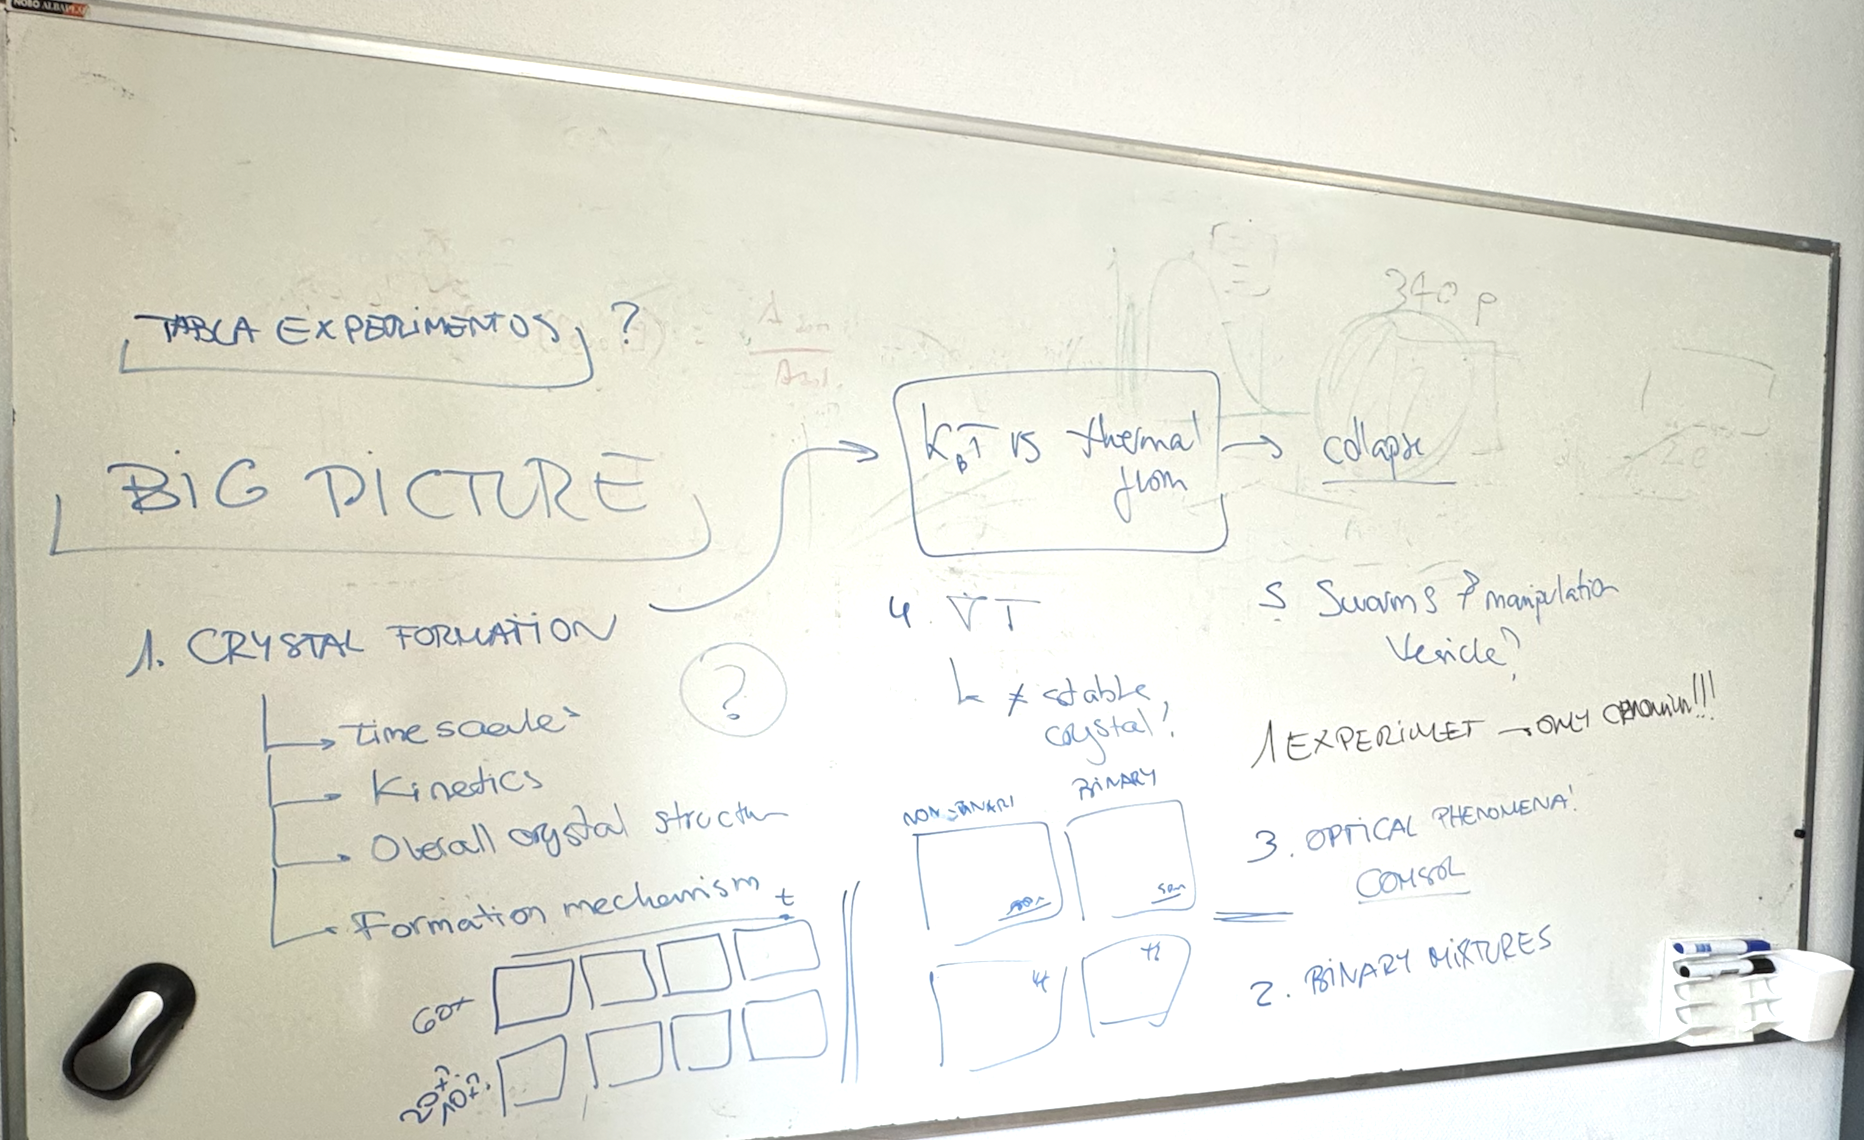 TABLA EXPERIMENTOS ?
BIG PICTURE
KBT vs thermal
from
→ collapse
1. CRYSTAL FORMATION
?
Time scales
Kinetics
Overall crystal structu
Formation mechanism
t
60x
4. ∇T
≠ stable
crystal?
NON-BINARI
BINARY
5 Swarms manipulation
Vesicle?
1 EXPERIMET → ONLY
3. OPTICAL PHENOMENA!
COMSOL
2. BINARY MIXTURES
340 p